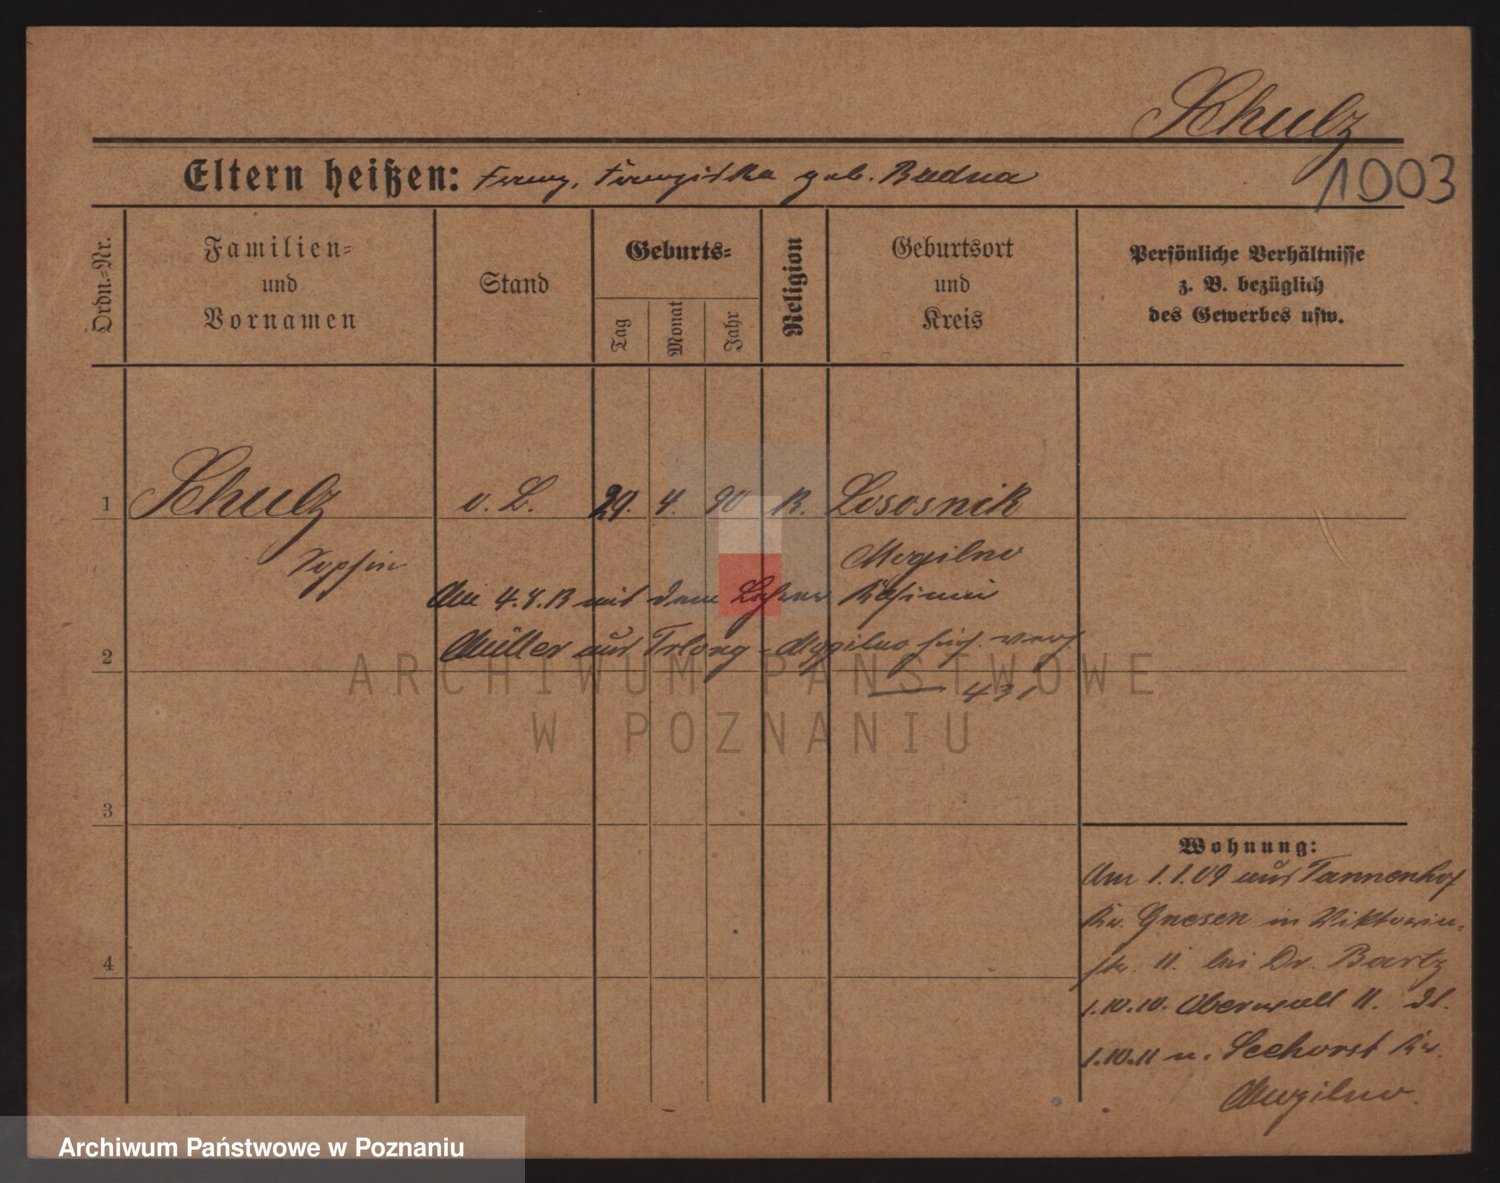 Schulz
1003
Eltern heißen: Franz, Franziska geb. Budna
Ordn.-Nr.
Familien- und Vornamen
Stand
Geburts-
Tag
Monat
Jahr
Religion
Geburtsort und Kreis
Persönliche Verhältnisse
z. B. bezüglich
des Gewerbes usw.
1 Schulz o. B. 29. 4. 90 K. Lososnik
Sophie Mogilno
Am 4.8.13 mit dem Kasimir
Müller aus Trlong-Mogilno sich verh.
431
2
3
4
Wohnung:
Am 1.1.09 aus Tannenhof
Kr. Gnesen in Viktoria-
str. 11. bei Dr. Bartz
1.10.10. Oberwall 11. Dt.
1.10.11 n. Seehorst Kr.
Mogilno.
ARCHIWUM PAŃSTWOWE
W POZNANIU
Archiwum Państwowe w Poznaniu